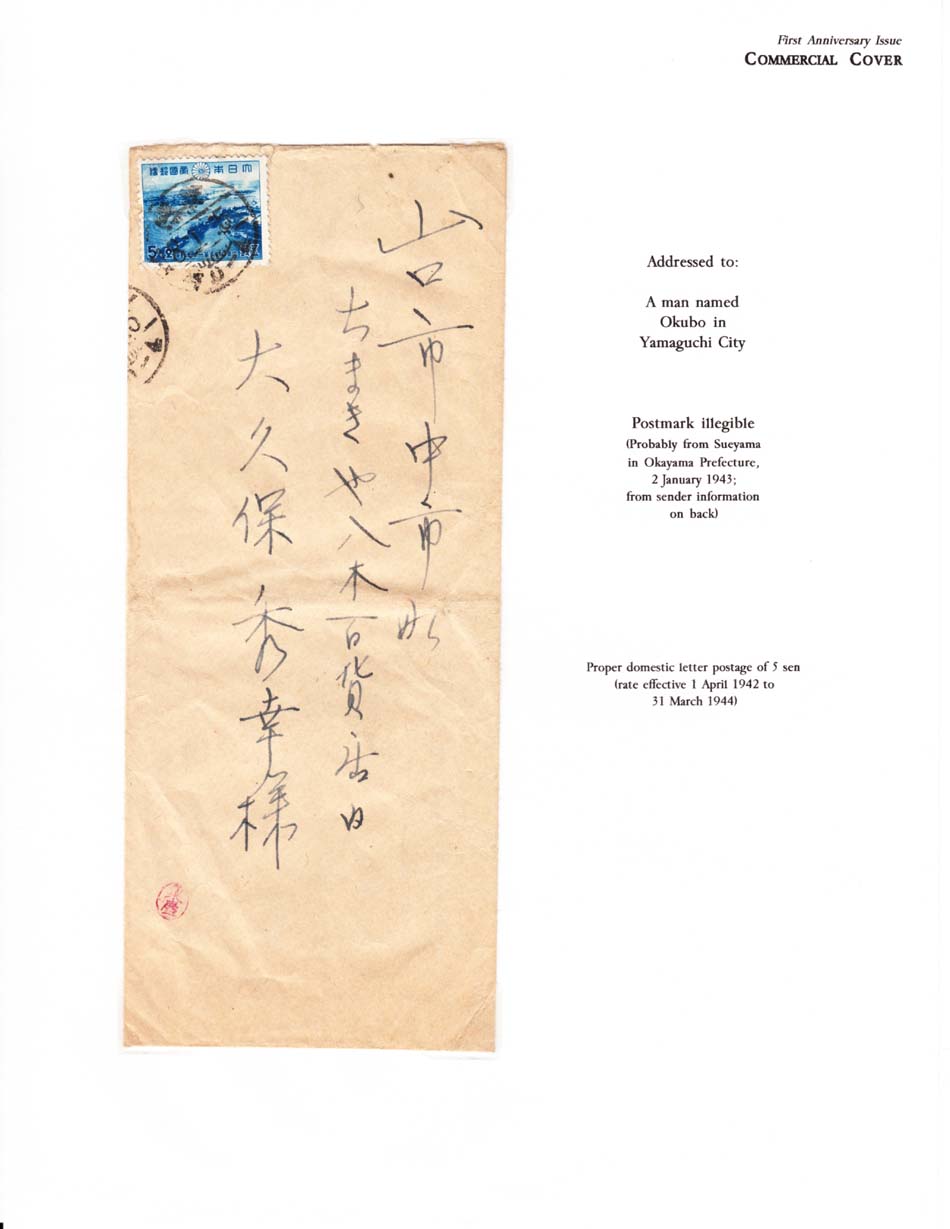 First Anniversary Issue
COMMERCIAL COVER
山口市中市町
ちまきや八木百貨店内
大久保秀幸様
Addressed to:
A man named
Okubo in
Yamaguchi City
Postmark illegible
(Probably from Sueyama
in Okayama Prefecture,
2 January 1943;
from sender information
on back)
Proper domestic letter postage of 5 sen
(rate effective 1 April 1942 to
31 March 1944)